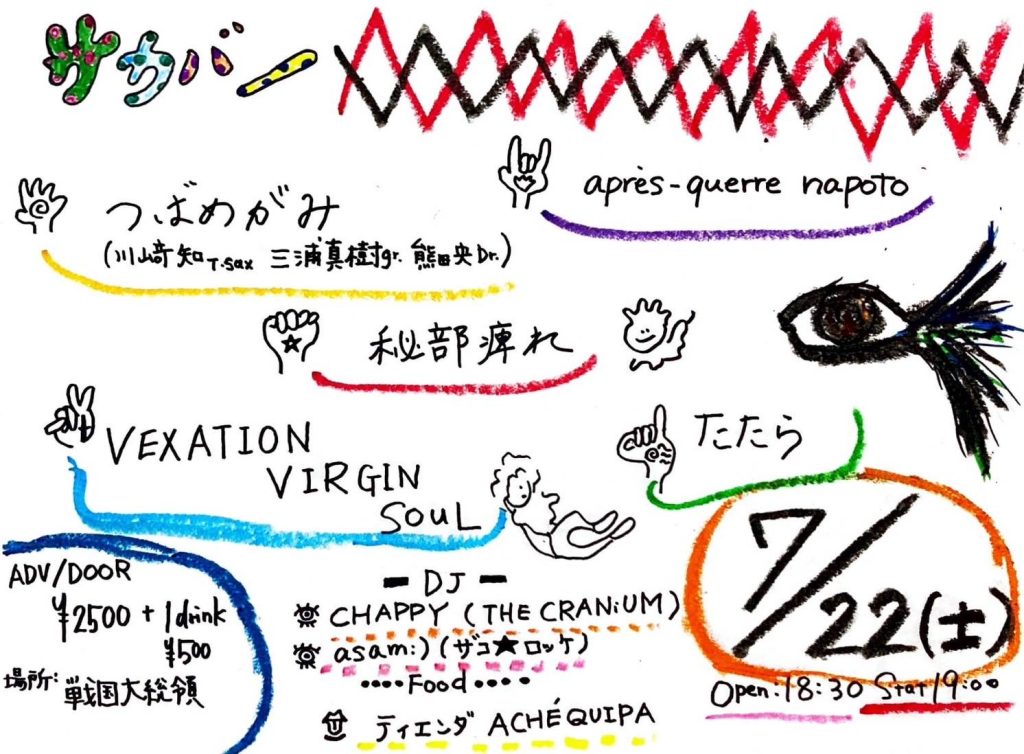 サウバー
après-querre napoto
つばめがみ
(川﨑知T.sax 三浦真樹gr. 熊田央Dr.)
秘部痺れ
VEXATION
VIRGIN
SOUL
たたら
7/22(土)
Open:18:30 Stat19:00
ADV/DOOR
¥2500 + 1drink
¥500
場所:戦国大総領
DJ
CHAPPY (THE CRANiUM)
asami:) (ザコ★ロッケ)
....Food....
ティエンダ ACHÉQUIPA